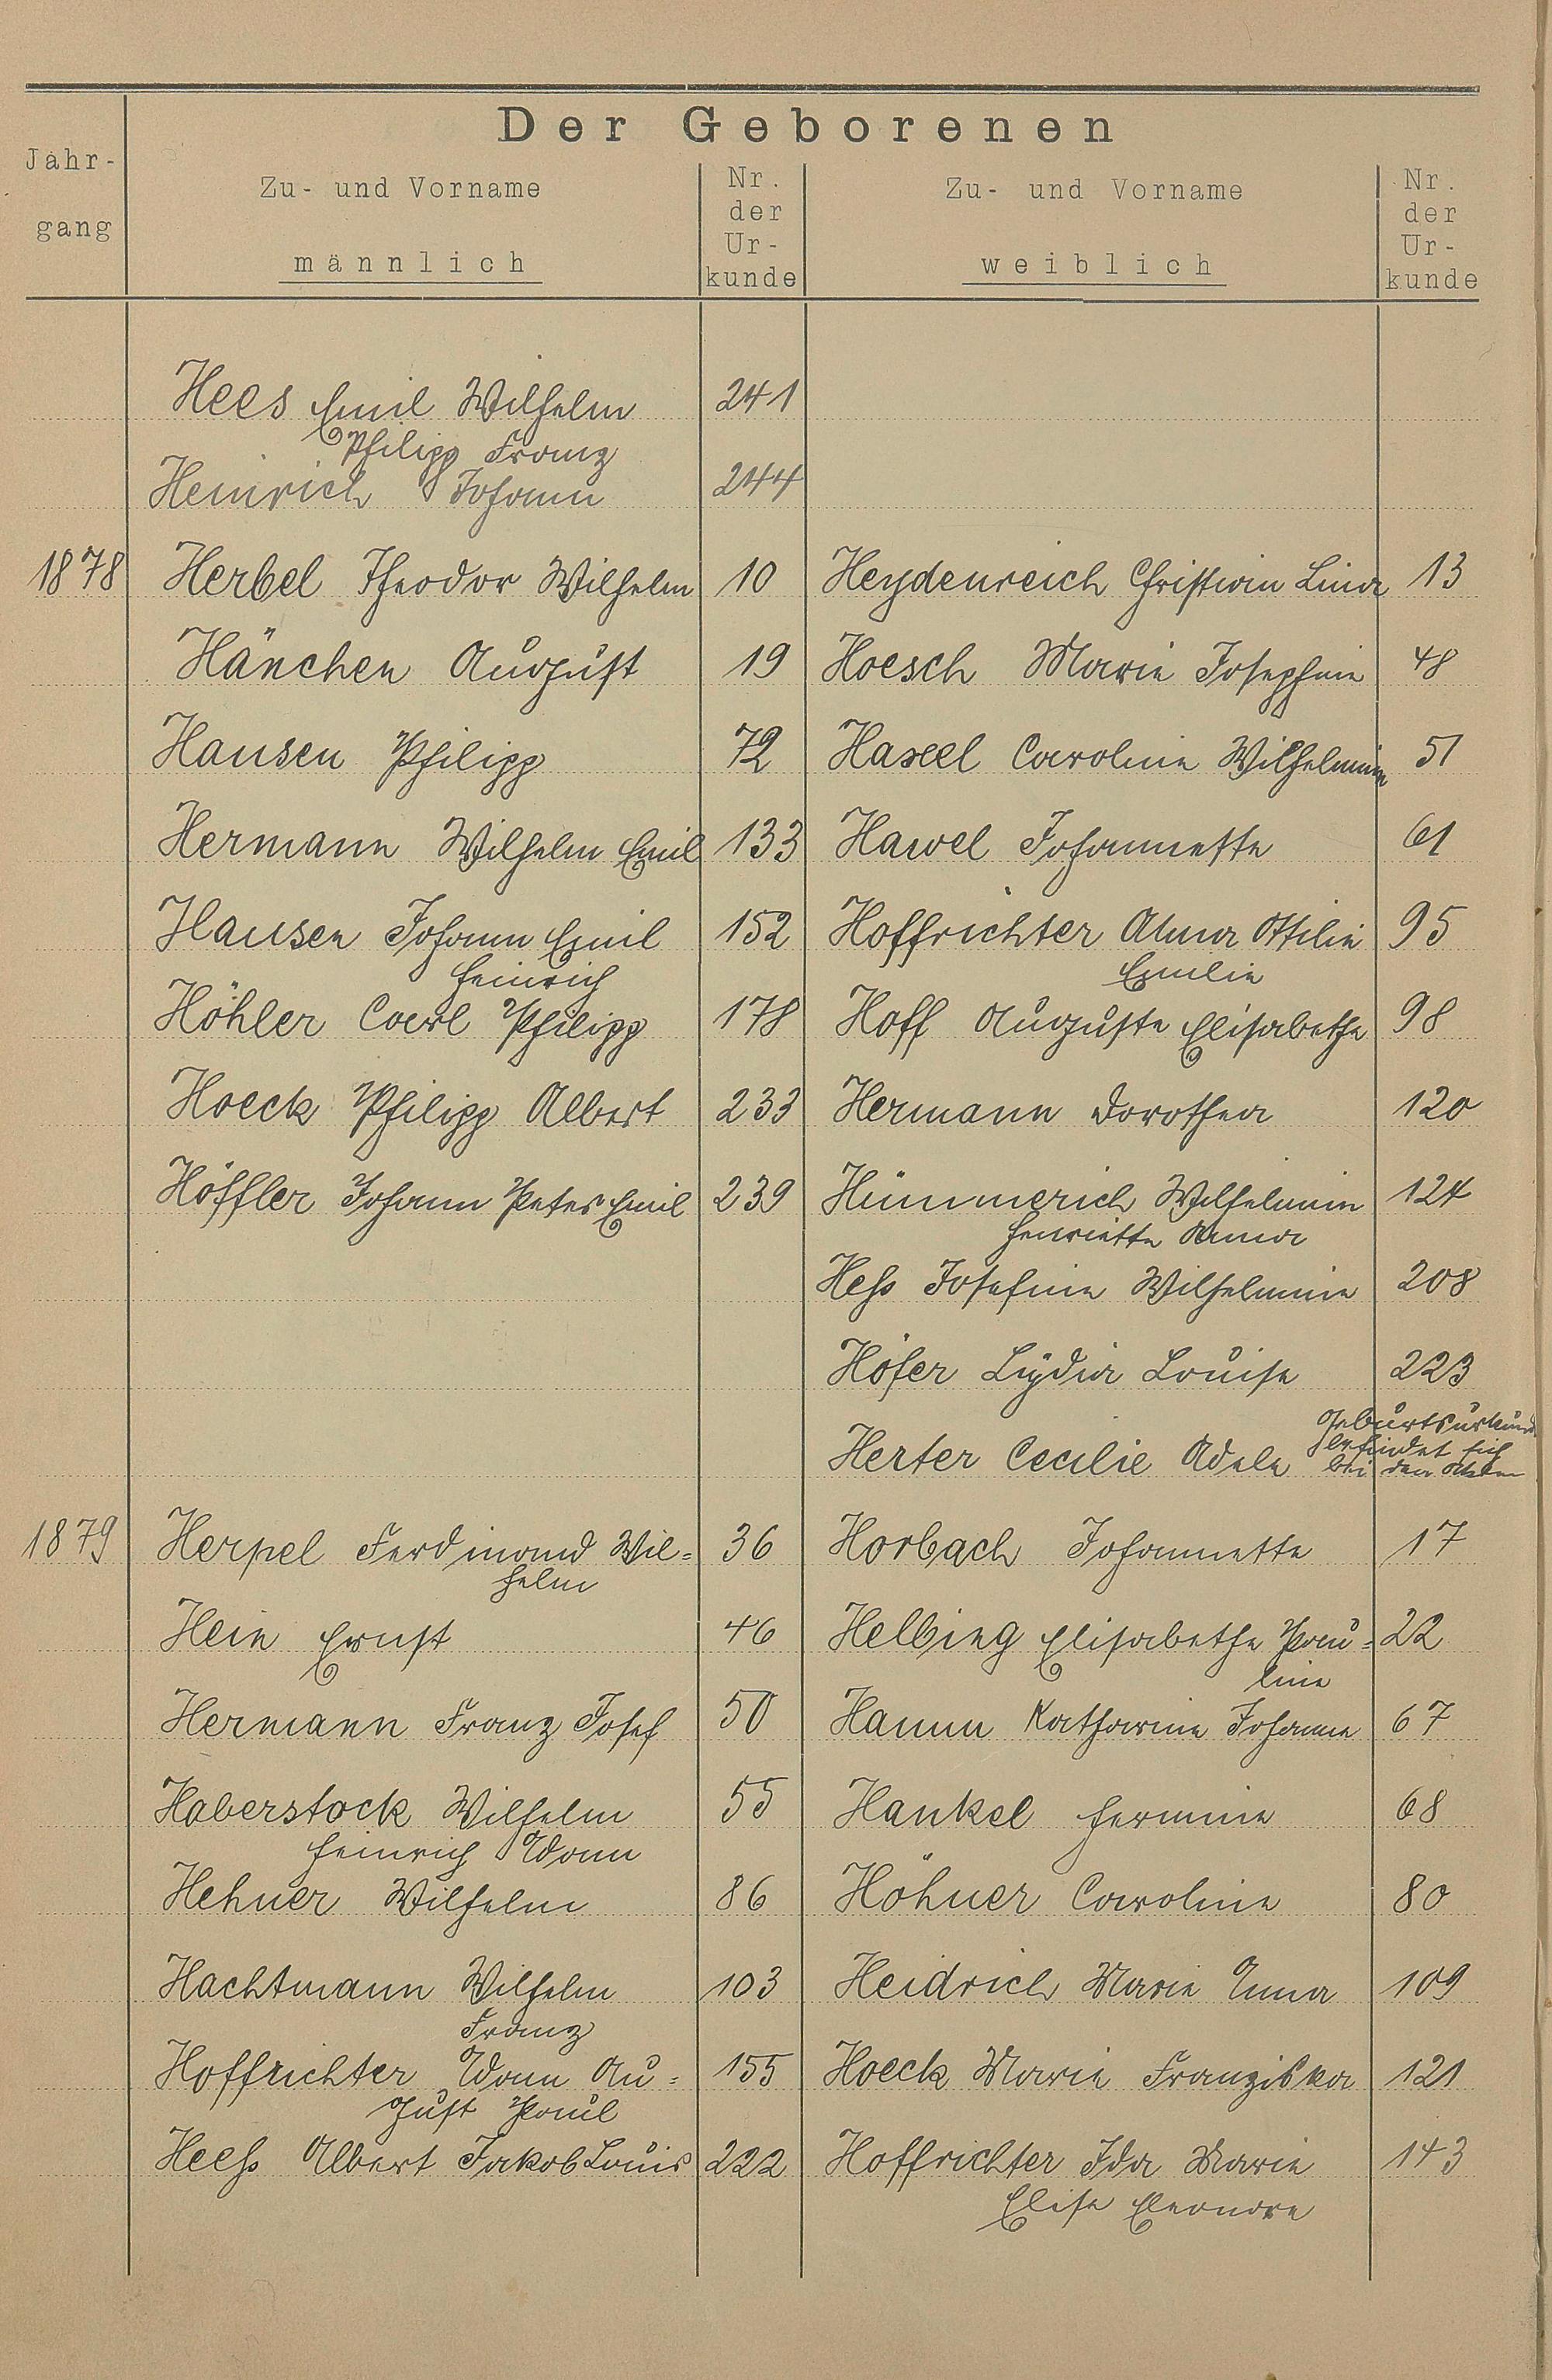 Der Geborenen
Jahr-
gang
Zu- und Vorname
männlich
Nr.
der
Ur-
kunde
Zu- und Vorname
weiblich
Nr.
der
Ur-
kunde
Hees Emil Wilhelm 241
Philipp Franz
Heinrich Johann 244
1878 Herbel Theodor Wilhelm 10 Heydenreich Christine Lina 13
Hänchen August 19 Hoesch Marie Josephine 48
Hausen Philipp 72 Hascel Caroline Wilhelmine 51
Hermann Wilhelm Emil 133 Hawel Johannette 61
Hausen Johann Emil 152 Hoffrichter Alma Ottilie 95
Heinrich Emilie
Höhler Carl Philipp 178 Hoff Auguste Elisabethe 98
Hoeck Philipp Albert 233 Hermann Dorothea 120
Höffler Johann Peter Emil 239 Hümmerich Wilhelmine 124
Henriette Anna
Heß Josefine Wilhelmine 208
Höfer Lydia Louise 223
Herter Cecilie Adele Geburtsurkunde
befindet sich
bei den Akten
1879 Herpel Ferdinand Wil= 36 Horbach Johannette 17
helm
Hein Ernst 46 Helbing Elisabethe Pau= 22
line
Hermann Franz Josef 50 Hamm Katharine Johanna 67
Haberstock Wilhelm 55 Hankel Hermine 68
Heinrich Adam
Hehner Wilhelm 86 Höhner Caroline 80
Hachtmann Wilhelm 103 Heidrich Marie Emma 109
Franz
Hoffrichter Adam Au= 155 Hoeck Marie Franziska 121
gust Paul
Heeß Albert Jakob Louis 222 Hoffrichter Ida Marie 143
Elise Eleonore